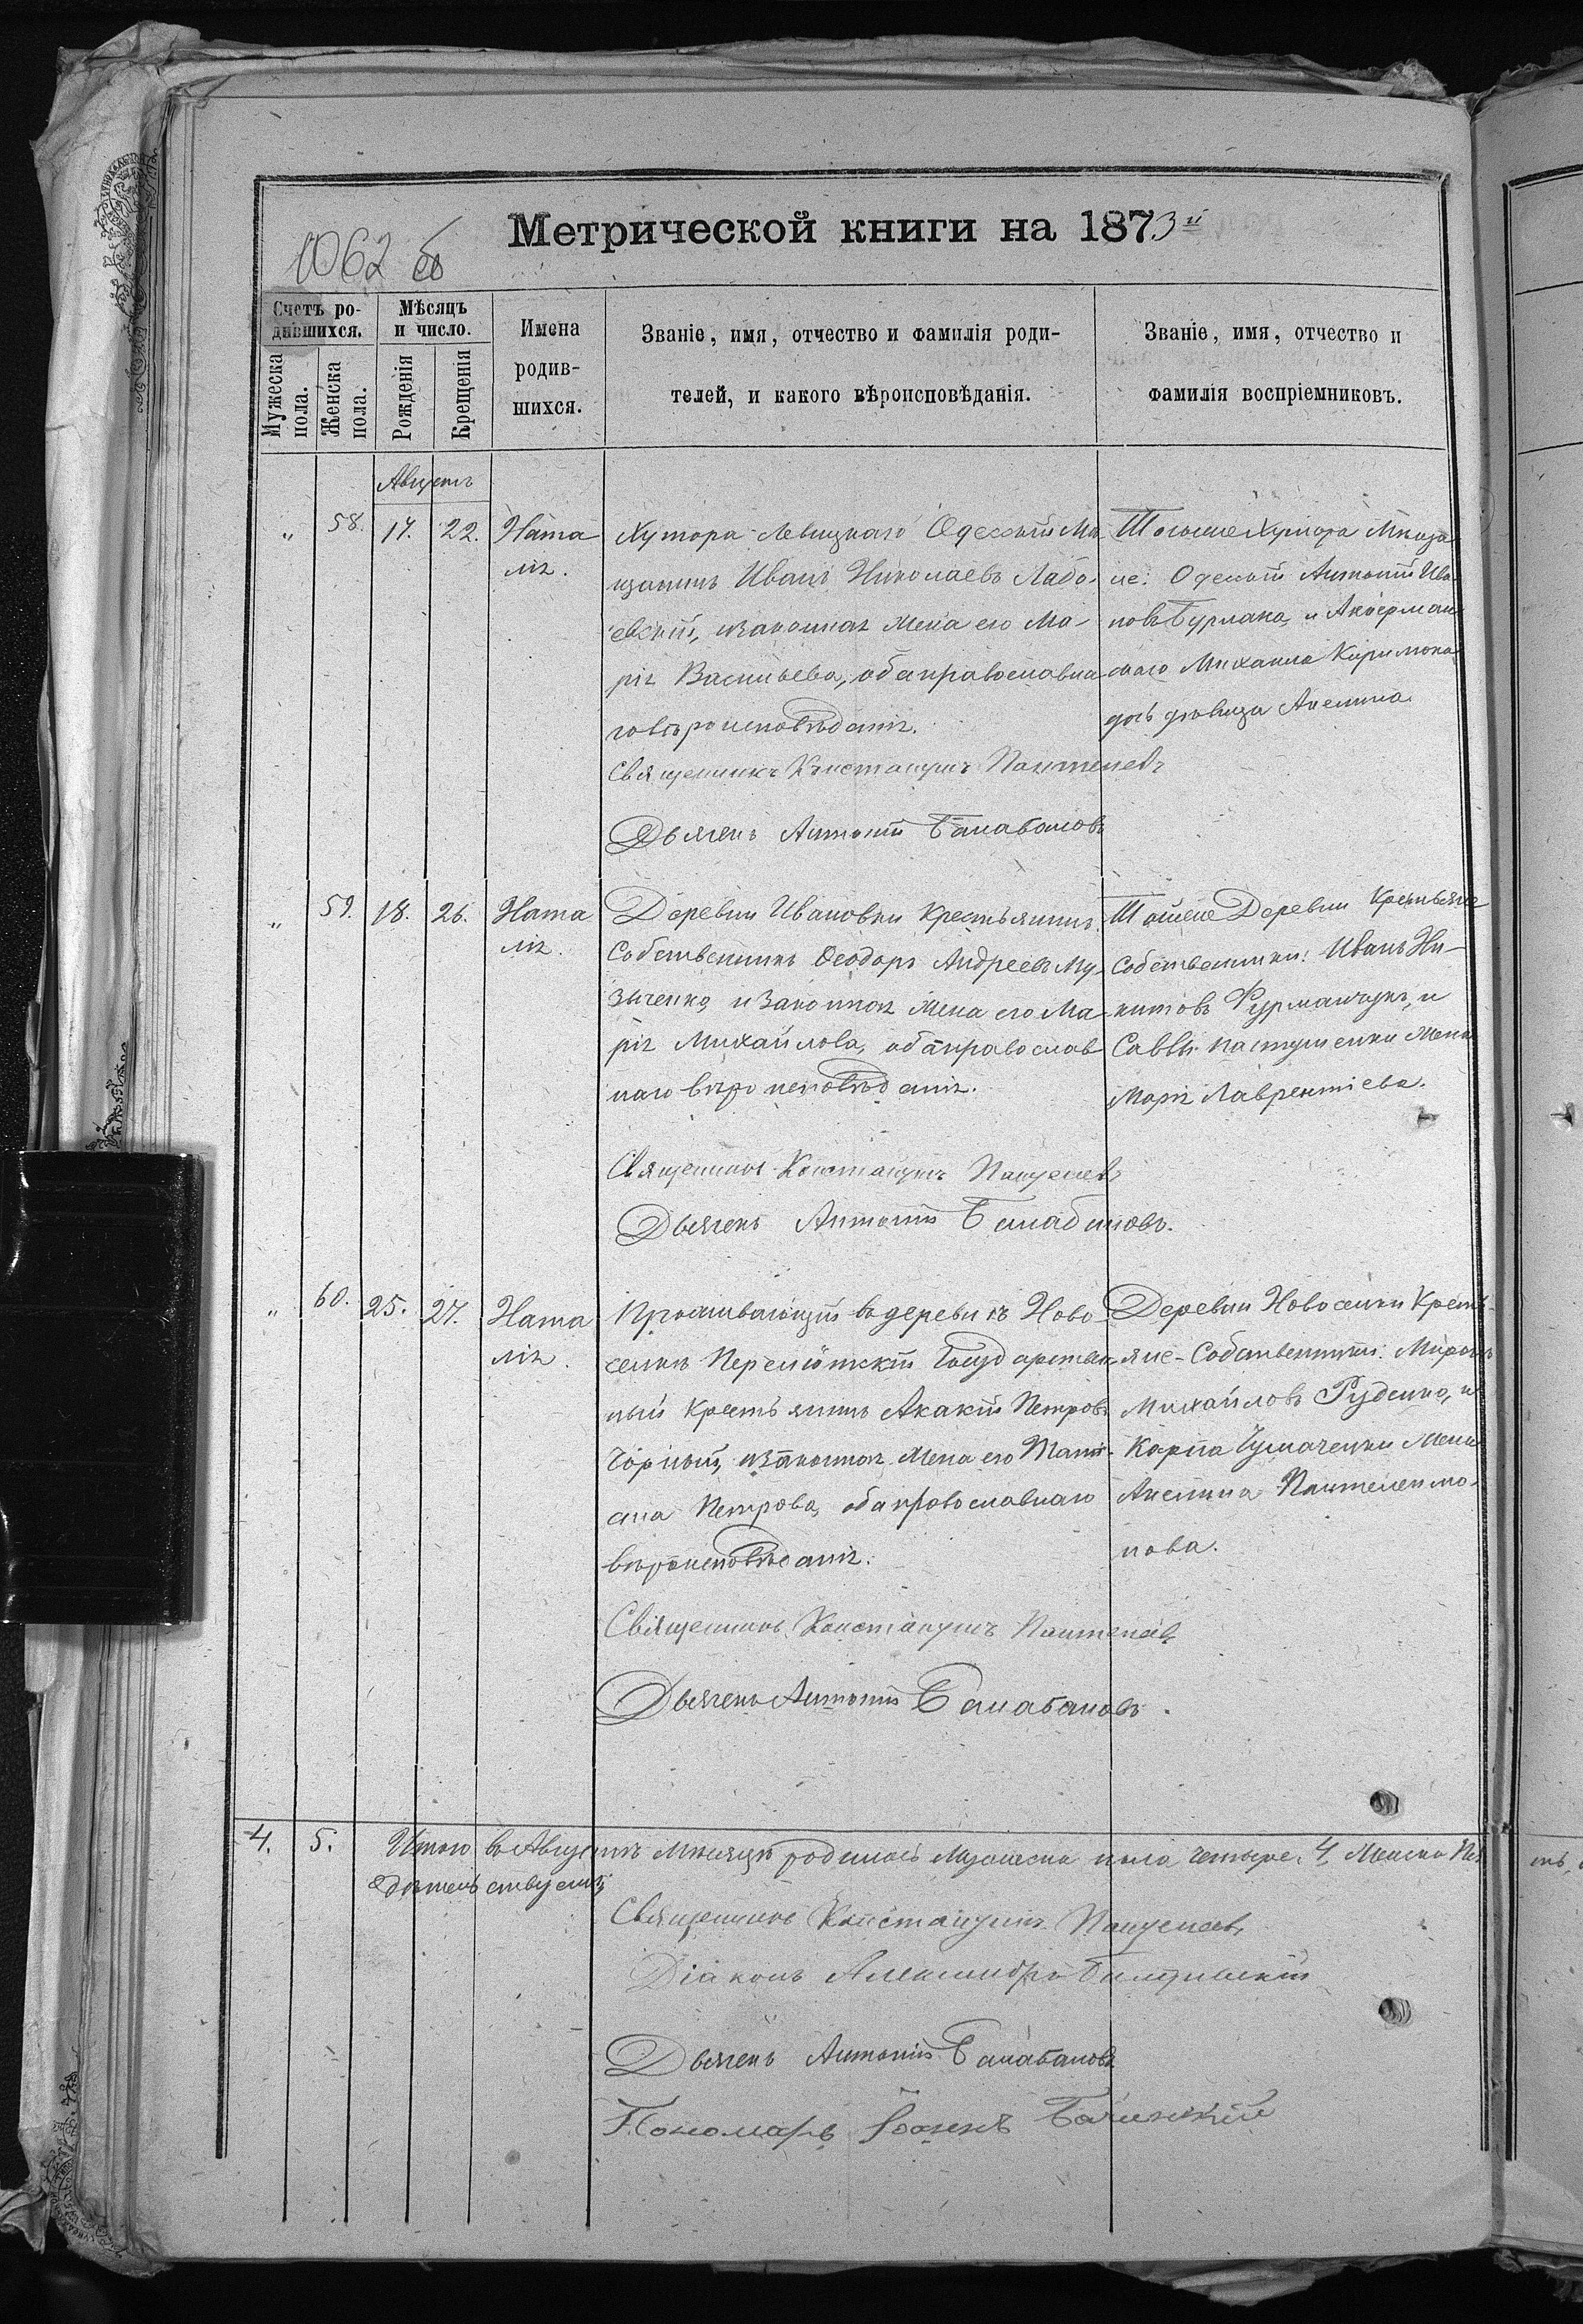 1062 об
Метрической книги на 1873й
Счетъ ро-
дившихся.
Мѣсяцъ
и число.
Имена
родив-
шихся.
Званіе, имя, отчество и фамилія роди-
телей, и какого вѣроисповѣданія.
Званіе, имя, отчество и
фамилія воспріемниковъ.
Мужеска
пола.
Женска
пола.
Рожденія
Крещенія
Августъ
" 58. 17. 22. Ната
лія.
Хутора Левицкаго Одесскій Мѣ
щанинъ Иванъ Николаевъ Лабо-
евскій, изаконная жена его Ма-
рія Васильева, оба православна
говѣроисповѣданія.
Священникъ Константинъ
Дьячекъ Антоній Балабановъ
Тогоже Хутора Мѣща
не: Одескій Антоній Ива
новъ Бурлака, и Аккерман
скаго Михаила
дочь дѣвица Акелина
" 59. 18. 26. Ната
лія.
Деревни Ивановки Крестьянинъ
Собственникъ Ѳеодоръ Андреевъ Му-
зыченко, изаконная жена его Ма-
рія Михайлова, оба православ
наго вѣроисповѣданія.
Священникъ Константинъ
Дьячекъ Антоній Балабановъ.
Тойже Деревни Крестьяне
Собственники: Иванъ Ни-
китовъ Фурманчукъ, и
Саввы Пастушенки жена
Марія Лаврентіева.
" 60. 25. 27. Ната
лія.
Проживающій въ деревнѣ Ново-
селкѣ Государствен
ный Крестьянинъ Акакій Петровъ
Чорный, изаконная жена его Тати-
ана Петрова, оба православнаго
вѣроисповѣданія.
Священникъ Константинъ
Дьячекъ Антоній Балабановъ.
Деревни Новоселки Кресть-
яне-Собственники: Миронъ
Михайловъ Руденко, и
Карпа Чумаченки жена
Акелина Пантелеимо-
нова.
4. 5. Итого въ Августѣ Мѣсяцѣ родилось Мужеска пола четыре, 4, Женска
Священникъ Константинъ
Діаконъ Александръ
Дьячекъ Антоній Балабановъ
Пономарь Іоаннъ